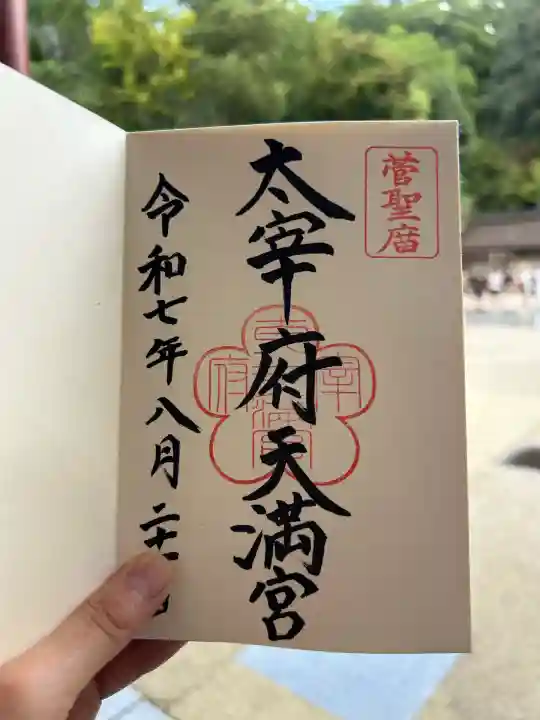 菅聖庿
太宰府天満宮
令和七年八月二十日